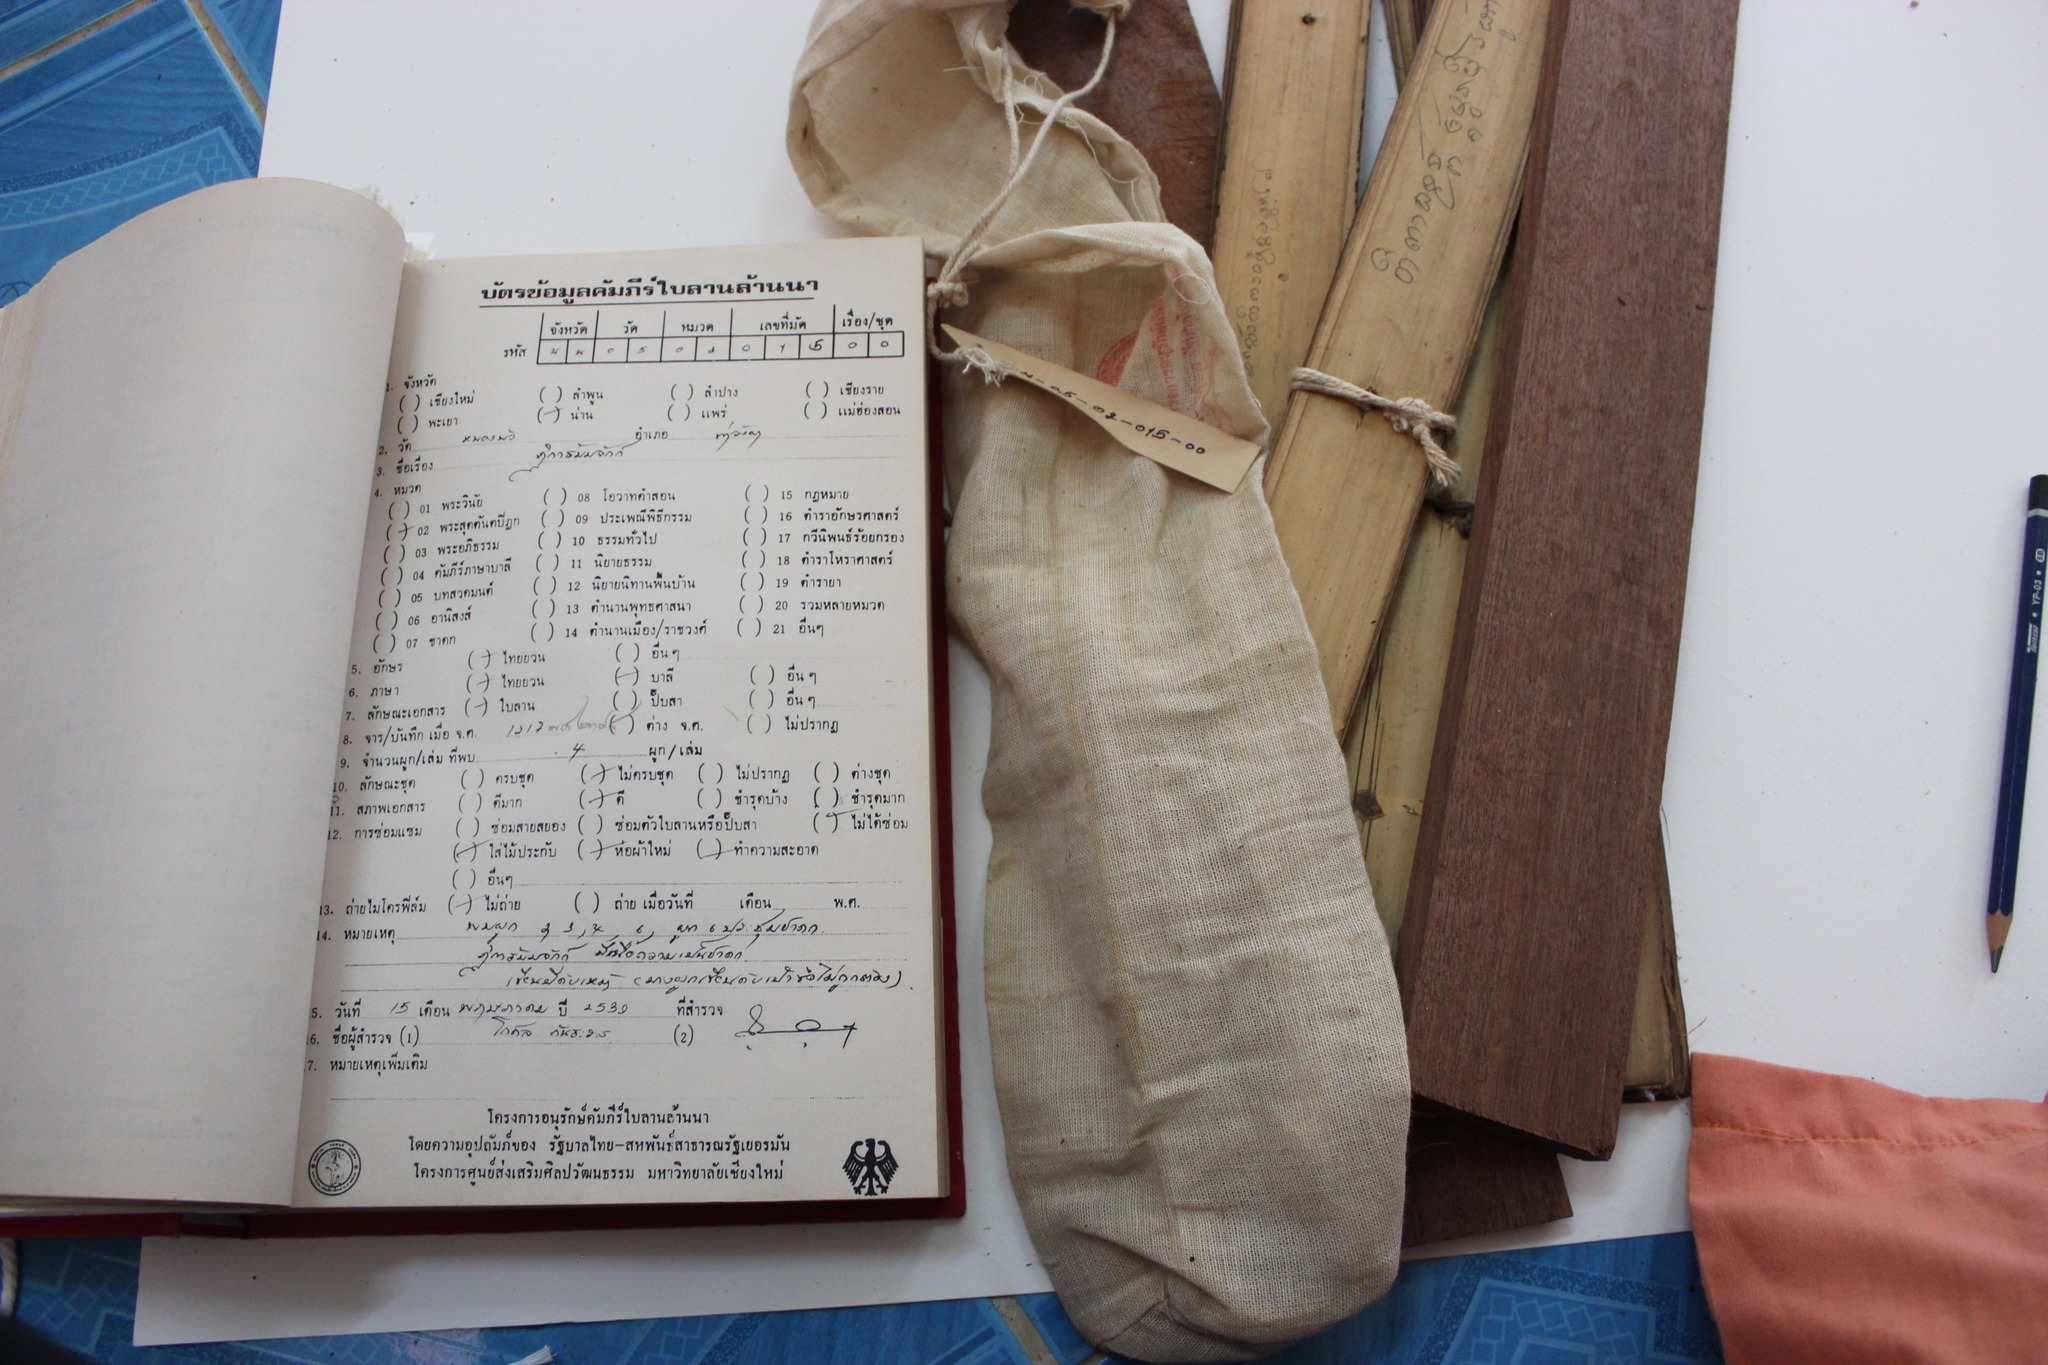 บัตรข้อมูลคัมภีร์ใบลานล้านนา
จังหวัด วัด หมวด เลขที่มัด เรื่อง/ชุด
รหัส น น 0 5 0 2 0 1 5 0 0
1. จังหวัด
( ) เชียงใหม่ ( ) ลำพูน ( ) ลำปาง ( ) เชียงราย
( ) พะเยา (/) น่าน ( ) แพร่ ( ) แม่ฮ่องสอน
2. วัด หนองบัว อำเภอ ท่าวังผา
3. ชื่อเรื่อง
4. หมวด
( ) 01 พระวินัย ( ) 08 โอวาทคำสอน ( ) 15 กฎหมาย
(/) 02 พระสุตตันตปิฎก ( ) 09 ประเพณีพิธีกรรม ( ) 16 ตำราอักษรศาสตร์
( ) 03 พระอภิธรรม ( ) 10 ธรรมทั่วไป ( ) 17 กวีนิพนธ์ร้อยกรอง
( ) 04 คัมภีร์ภาษาบาลี ( ) 11 นิยายธรรม ( ) 18 ตำราโหราศาสตร์
( ) 05 บทสวดมนต์ ( ) 12 นิยายนิทานพื้นบ้าน ( ) 19 ตำรายา
( ) 06 อานิสงส์ ( ) 13 ตำนานพุทธศาสนา ( ) 20 รวมหลายหมวด
( ) 07 ชาดก ( ) 14 ตำนานเมือง/ราชวงศ์ ( ) 21 อื่นๆ
5. อักษร (/) ไทยยวน ( ) อื่นๆ
6. ภาษา (/) ไทยยวน (/) บาลี ( ) อื่นๆ
7. ลักษณะเอกสาร (/) ใบลาน ( ) ปั๊บสา ( ) อื่นๆ
8. จาร/บันทึก เมื่อ จ.ศ. (/) ต่าง จ.ศ. ( ) ไม่ปรากฏ
9. จำนวนผูก/เล่ม ที่พบ 4 ผูก/เล่ม
10. ลักษณะชุด ( ) ครบชุด (/) ไม่ครบชุด ( ) ไม่ปรากฏ ( ) ต่างชุด
11. สภาพเอกสาร ( ) ดีมาก (/) ดี ( ) ชำรุดบ้าง ( ) ชำรุดมาก
12. การซ่อมแซม ( ) ซ่อมสายสยอง ( ) ซ่อมตัวใบลานหรือปั๊บสา (/) ไม่ได้ซ่อม
(/) ใส่ไม้ประกับ (/) ห่อผ้าใหม่ (/) ทำความสะอาด
( ) อื่นๆ
13. ถ่ายไมโครฟิล์ม (/) ไม่ถ่าย ( ) ถ่าย เมื่อวันที่ เดือน พ.ศ.
14. หมายเหตุ
15. วันที่ 15 เดือน พฤษภาคม ปี 2530 ที่สำรวจ
16. ชื่อผู้สำรวจ (1) (2)
17. หมายเหตุเพิ่มเติม
โครงการอนุรักษ์คัมภีร์ใบลานล้านนา
โดยความอุปถัมภ์ของ รัฐบาลไทย-สหพันธ์สาธารณรัฐเยอรมัน
โครงการศูนย์ส่งเสริมศิลปวัฒนธรรม มหาวิทยาลัยเชียงใหม่
น-05-02-015-00
YP-03